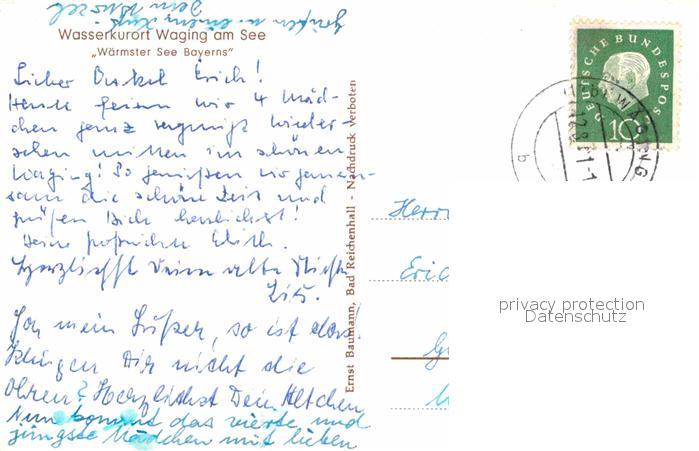 Grüßen u. einem Kuß
Dein
Wasserkurort Waging am See
„Wärmster See Bayerns"
Lieber Onkel Erich!
Heute feiern wir 4 Mäd-
chen ganz vergnügt Wieder-
sehen mitten im schönen
Waging! So genießen wir gemein-
sam die schöne Zeit und
grüßen Dich herzlichst!
Deine Edith.
Herzlichst Deine alte
Ja mein Süßer, so ist das!
Klingen Dir nicht die
Ohren? Herzlichst Dein Altchen
Nun kommt das vierte und
jüngste Mädchen mit lieben
Ernst Baumann, Bad Reichenhall - Nachdruck verboten
DEUTSCHE BUNDESPOS
10
WAGING
b
Herrn
Eric
privacy protection
Datenschutz